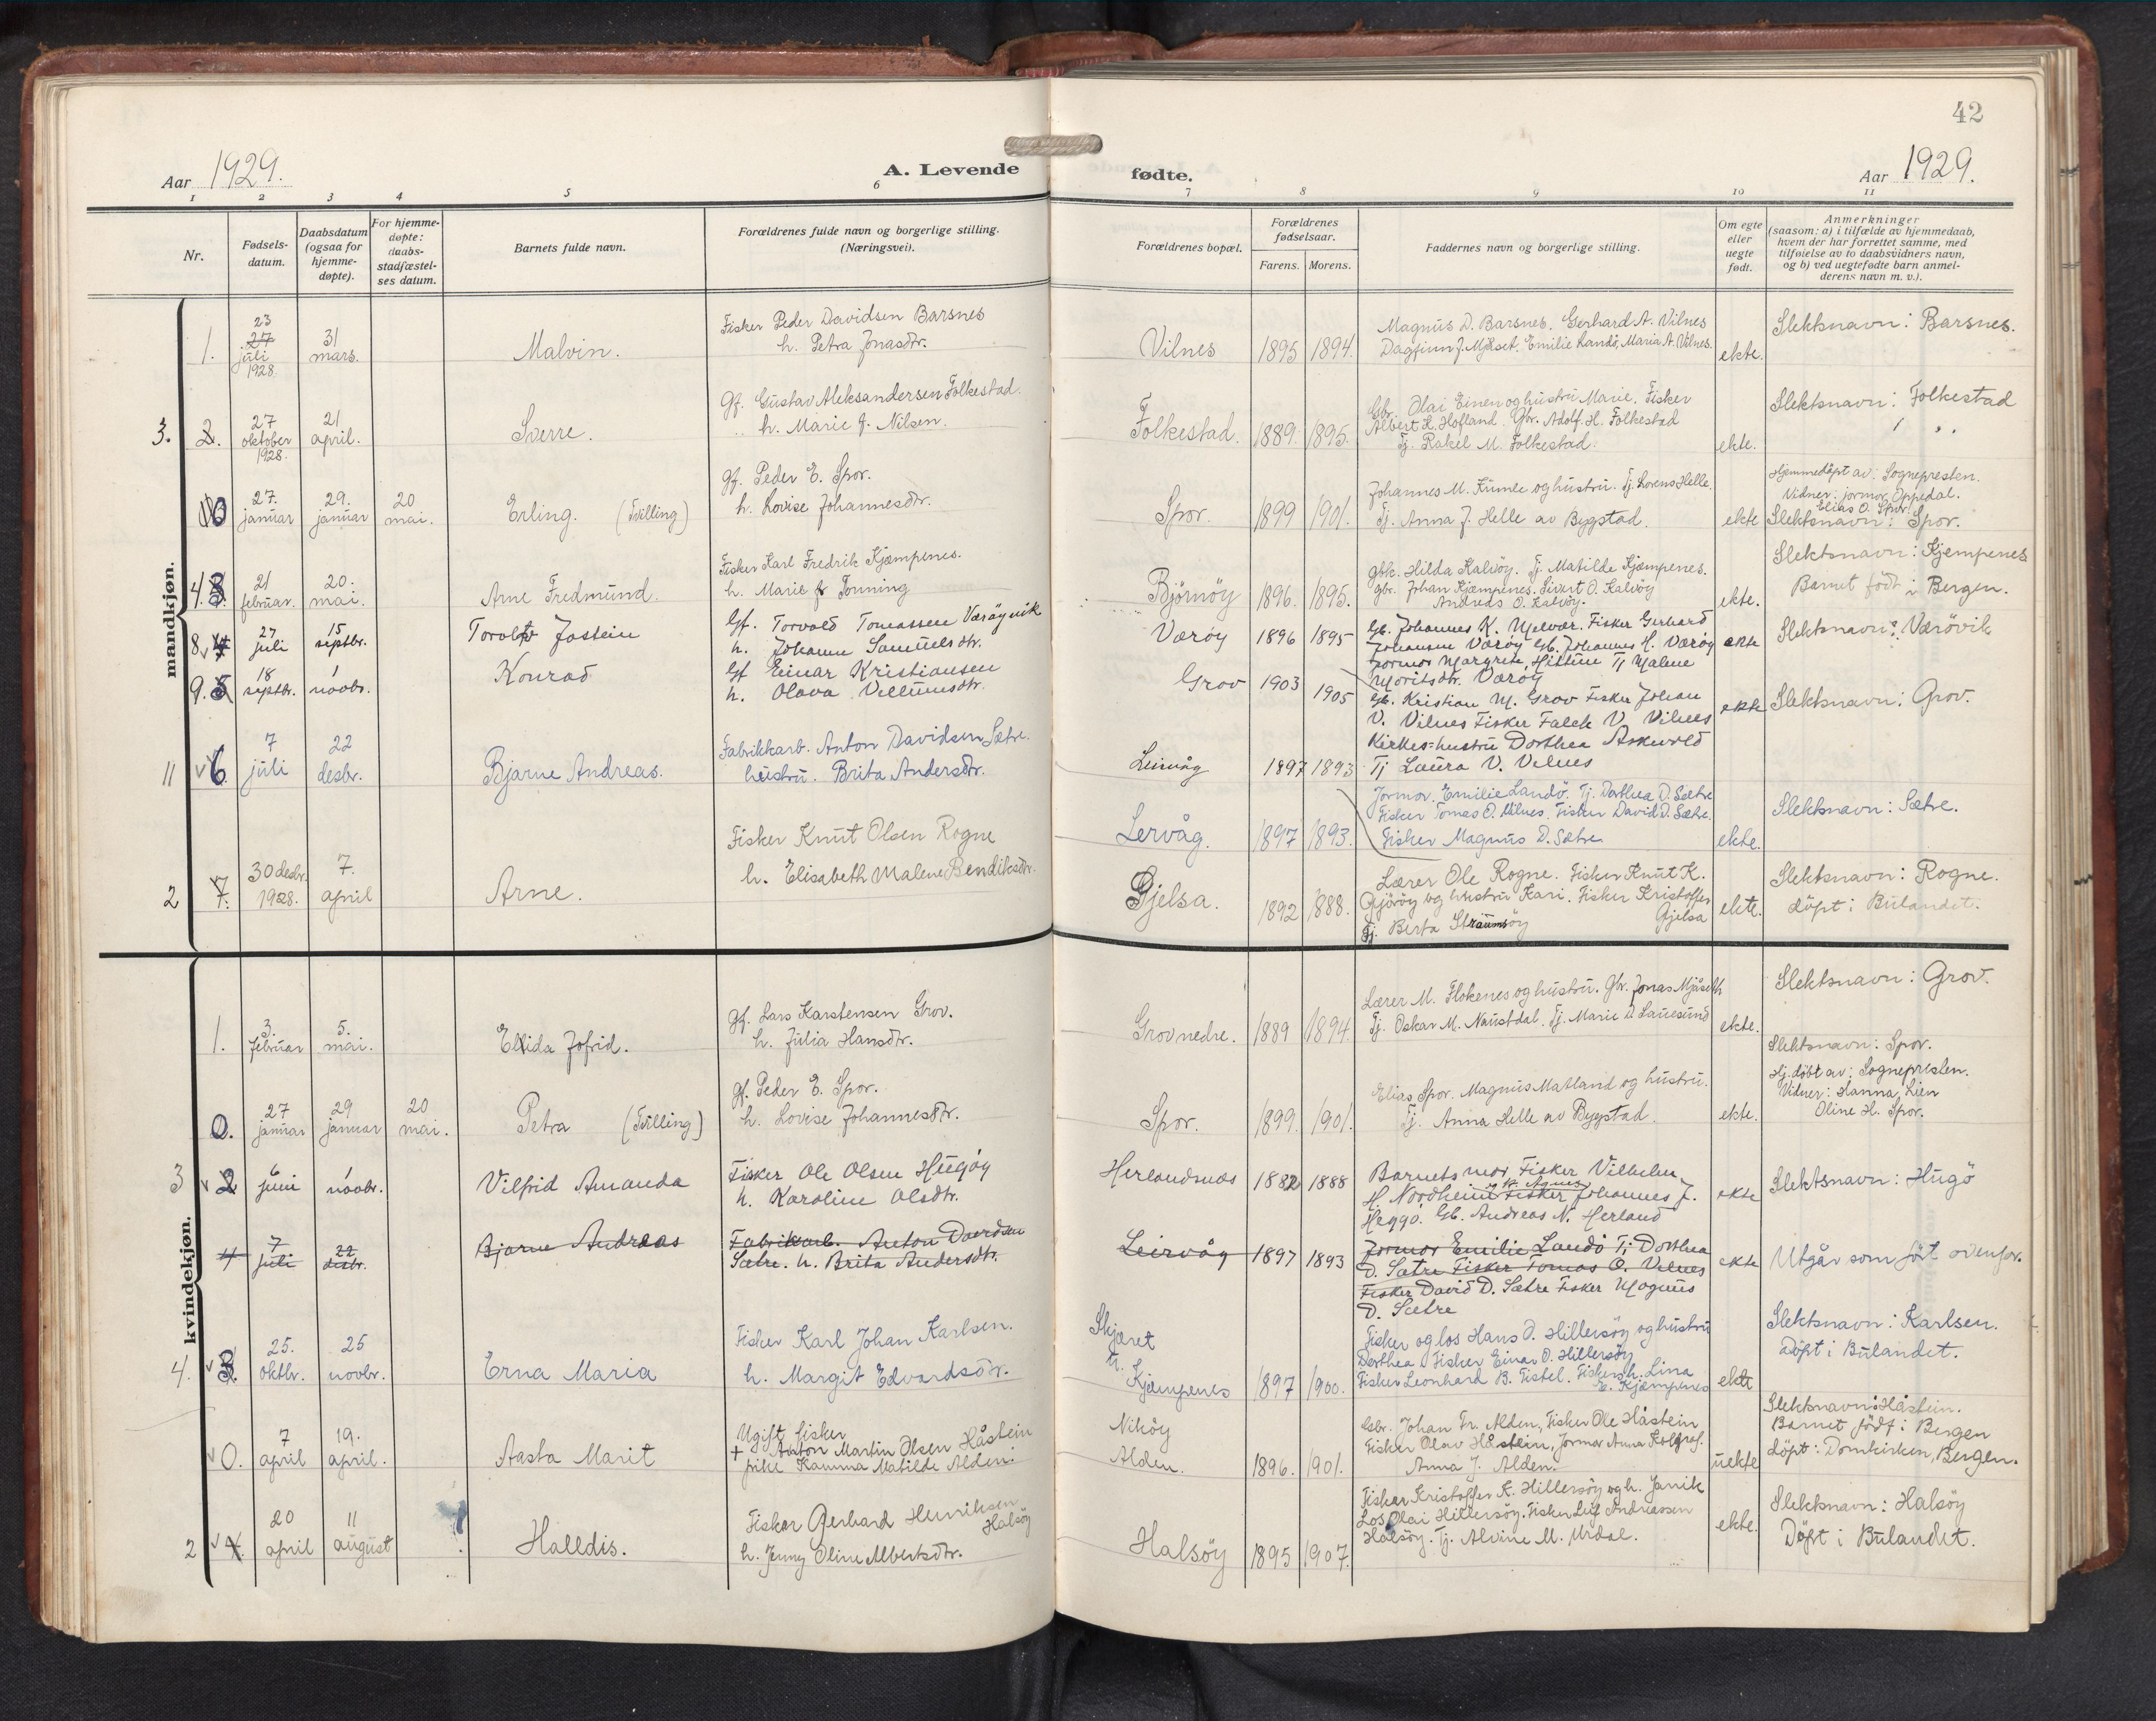 42
Aar 1929.
A. Levende fødte.
Aar 1929.
1 2 3 4 5 6 7 8 9 10 11
Nr.
Fødsels-
datum.
Daabsdatum
(ogsaa for
hjemme-
døpte).
For hjemme-
døpte:
daabs-
stadfæstel-
ses datum.
Barnets fulde navn.
Forældrenes fulde navn og borgerlige stilling.
(Næringsvei).
Forældrenes bopæl.
Forældrenes
fødselsaar.
Farens. Morens.
Faddernes navn og borgerlige stilling.
Om egte
eller
uegte
født.
Anmerkninger
(saasom: a) i tilfælde av hjemmedaab,
hvem der har forrettet samme, med
tilføielse av to daabsvidners navn,
og b) ved uegtefødte barn anmel-
derens navn m. v.).
mandkjøn.
1.
23
27
juli
1928
31
mars.
Malvin.
Fisker Peder Davidsen Barsnes
h. Petra Jonasdtr.
Vilnes
1895 1894.
Magnus D. Barsnes. Gerhard A. Vilnes
Dagfinn J. Mjåset. Emilie Landö, Maria A. Vilnes.
ekte.
Slektsnavn: Barsnes.
3. 2.
27
oktober
1928.
21
april.
Sverre.
Gf. Gustav Aleksandersen Folkestad.
h. Marie J. Nilsen.
Folkestad.
1889. 1895.
Gbr. Olai Einen og hustru Marie. Fisker
Albert K. Hofland. Gbr. Adolf H. Folkestad
Tj. Rakel M. Folkestad.
ekte.
Slektsnavn: Folkestad
0
27.
januar
29.
januar
20
mai.
Erling. (Tvilling)
Gf. Peder E. Spor.
h. Lovise Johannesdtr.
Spor.
1899 1901.
Johannes M. Kumle og hustru. Tj. Lorens Helle.
Tj. Anna J. Helle av Bygstad.
ekte
Hjemmedöpt av: Sognepresten.
Vidner: jormor Oppedal.
Elias O. Spor.
Slektsnavn: Spor.
4. 3.
21
februar.
20.
mai.
Arne Fredmund.
Fisker Karl Fredrik Kjæmpenes.
h. Marie Tonning
Björnöy
1896. 1895.
Gbk. Hilda Kalvöy. Tj. Matilde Kjæmpenes.
Gbr. Johan Kjæmpenes. Sivert O. Kalvöy
Andreas O. Kalvöy.
ekte.
Slektsnavn: Kjempenes
Barnet födt i Bergen.
8 4
27
juli
15
septbr.
Torolv Jostein
Gf. Torvald Tomassen Værøyvik
h. Johanne Samuelsdtr.
Værøy
1896 1895
Gb. Johannes K. Melvær. Fisker Gerhard
Johansen Værøy Gb. Johannes H. Værøy
Jormor Margrete Hittun Tj Malene
Moritsdtr. Værøy
ekte
Slektsnavn: Værövik
9. 5
18
septbr.
1
novbr.
Konrad
Gf Einar Kristiansen
h. Olava Villumsdtr.
Grov
1903 1905
Gb. Kristian M. Grov Fisker Johan
V. Vilnes Fisker Falck V. Vilnes
Kirkes. hustru Dorthea Askvold
Tj Laura V. Vilnes
ekte
Slektsnavn: Grov.
11 6
7
juli
22
desbr.
Bjarne Andreas.
Fabrikkarb. Anton Davidsen Sætre.
hustru. Brita Andersdtr.
Leirvåg
1897 1893
Lervåg.
1897 1893.
Jormor. Emilie Landö. Tj. Dorthea D. Sætre
Fisker Tomas O. Vilnes. Fisker David D. Sætre.
Fisker Magnus D. Sætre
ekte.
Slektsnavn: Sætre.
2 7.
30 desbr.
1928.
7.
april
Arne.
Fisker Knut Olsen Rogne
h. Elisabeth Malene Bendiksdtr.
Gjelsa.
1892 1888.
Lærer Ole Rogne. Fisker Knut K.
Gjöröy og hustru Kari. Fisker Kristoffer
Gjelsa
Tj. Berta Straumsöy
ekte.
Slektsnavn: Rogne.
döpt i Bulandet.
kvindekjøn.
1.
3.
februar
5.
mai.
Ellida Jofrid.
Gf. Lars Karstensen Grov.
h. Julia Hansdtr.
Grov nedre.
1889 1894.
Lærer M. Flokenes og hustru. Gbr. Jonas Mjåseth
Tj. Oskar M. Naustdal. Tj. Marie D Lauesund
ekte.
Slektsnavn: Grov.
0.
27
januar
29
januar
20
mai.
Petra (Tvilling)
Gf. Peder E. Spor.
h. Lovise Johannesdtr.
Spor.
1899. 1901.
Elias Spor. Magnus Matland og hustru.
Tj. Anna Helle av Bygstad.
ekte.
Slektsnavn: Spor.
Hj. döbt av: Sognepresten.
Vidner: Hanna Lien
Oline H. Spor.
3 2
6
juni
1
novbr.
Vilfrid Amanda
Fisker Ole Olsen Hugöy
h. Karoline Olsdtr.
Herlandsnæs
1882 1888
Barnets mor Fisker Vilhelm
H. Nordheim og h. Agnes Fisker Johannes J.
Heggö. Gb. Andreas N. Herland
ekte
Slektsnavn: Hugö
4
7
juli
22
desbr.
Bjarne Andreas
Fabrikkarb. Anton Davidsen
Sætre. h. Brita Andersdtr.
Leirvåg
1897 1893
Jormor Emilie Landö Tj Dorthea
D. Sætre Fisker Tomas O. Vilnes
Fisker David D. Sætre Fisker Magnus
D. Sætre
ekte
Utgår som fört ovenfor.
4. 3.
25.
oktbr.
25
novbr.
Erna Maria
Fisker Karl Johan Karlsen.
h. Margit Edvardsdtr.
Skjæret
Kjæmpenes
1897 1900.
Fisker og los Hans O. Hillersöy og hustru
Dorthea Fisker Einar O. Hillersöy
Fisker Leonhard B. Fistel. Fiskersh. Lina
E. Kjæmpenes
ekte
Slektsnavn: Karlsen.
döpt i Bulandet.
0.
7
april
19.
april.
Aasta Marit
Ugift fisker
+ Anton Martin Olsen Håstein
pike Kamma Matilde Alden.
Niköy
Alden.
1896. 1901.
Gbr. Johan Fr. Alden, Fisker Ole Håstein
Fisker Olav Håstein, Jormor Anna
Anna J. Alden.
uekte
Slektsnavn: Håstein.
Barnet födt i Bergen
döpt: Domkirken, Bergen.
2 4.
20
april
11
august
Halldis.
Fisker Gerhard Henriksen
Halsöy
h. Jenny Oline Albertsdtr.
Halsöy
1895 1907.
Fisker Kristoffer K. Hillersöy og h. Janik
Los Olai Hillersöy. Fisker Leif Andreassen
Halsöy. Tj. Alvine M. Midal.
ekte.
Slektsnavn: Halsöy
Döpt i Bulandet.